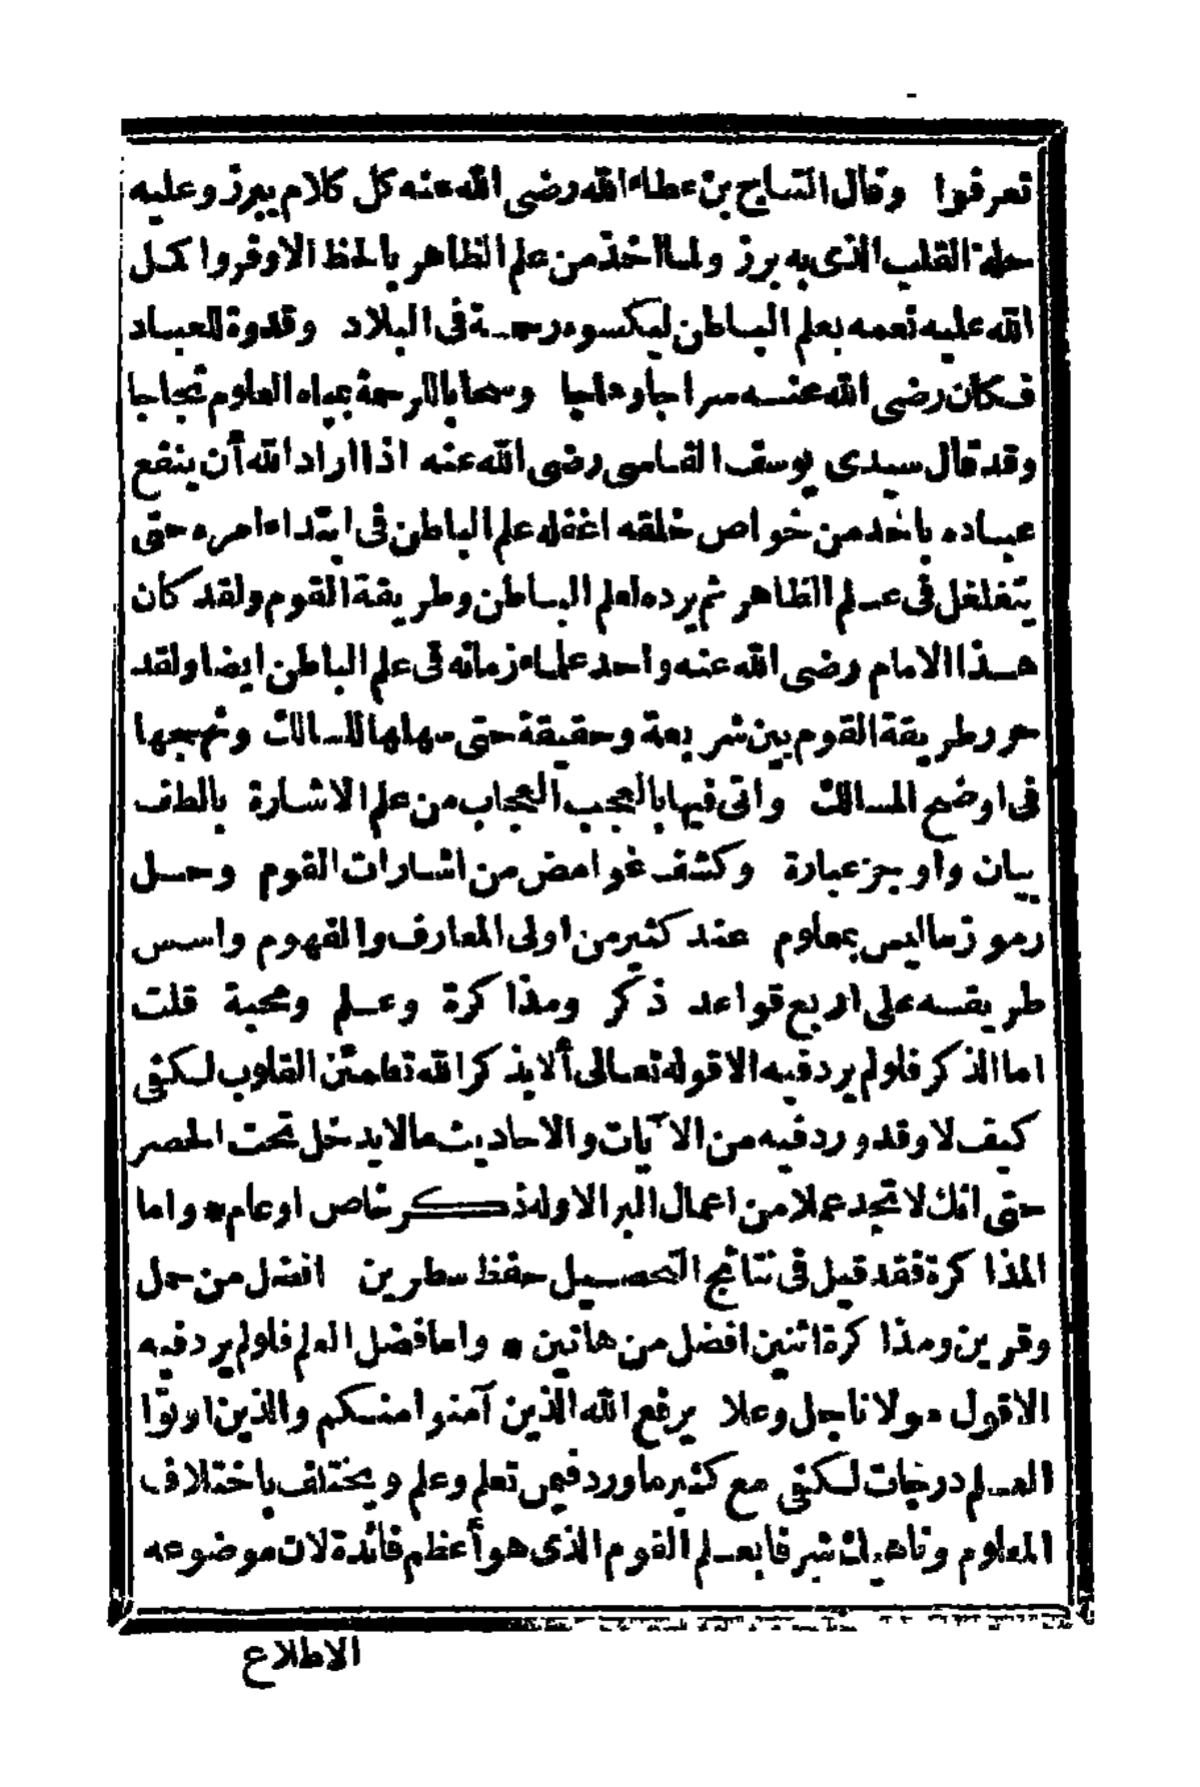 تعرفوا وقال التاج بن عطاء الله رضى الله عنه كل كلام يبرز وعليه
حلة القلب الذى به برز ولما اخذ من علم الظاهر بالحظ الاوفر واكمل
الله عليه نعمه بعلم الباطن ليكسوه رحمة فى البلاد وقدوة للعباد
فكان رضى الله عنه سراجا وهاجا وسحابا للرحمة بمياه العلوم ثجاجا
وقد قال سيدى يوسف الفاسى رضى الله عنه اذا اراد الله أن ينفع
عباده باحد من خواص خلقه اغفله علم الباطن فى ابتداء امره حتى
يتغلغل فى علم الظاهر ثم يرده لعلم الباطن وطريقة القوم ولقد كان
هذا الامام رضى الله عنه واحد علماء زمانه فى علم الباطن ايضا ولقد
حرر طريقة القوم بين شريعة وحقيقة حتى سهلها للسالك ونهجها
فى اوضح المسالك واتى فيها بالعجب العجاب من علم الاشارة بالطف
بيان واوجز عبارة وكشف غوامض من اشارات القوم وحل
رموزا ماليس بمعلوم عند كثير من اولى المعارف والفهوم واسس
طريقسه على اربع قواعد ذكر ومذاكرة وعلم ومحبة قلت
اما الذكر فلولم يرد فيه الا قوله تعالى ألا بذكر الله تطمئن القلوب لكفى
كيف لا وقد ورد فيه من الآيات والاحاديث مالا يدخل تحت الحصر
حتى انك لا تجد عملا من اعمال البر الا وله ذكر خاص او عام * واما
المذاكرة فقد قيل فى نتائج التحصيل حفظ سطرين افضل من حمل
وقرين ومذاكرة اثنين افضل من هاتين * واما فضل العلم فلولم يرد فيه
الا قول مولانا جل وعلا يرفع الله الذين آمنوا منكم والذين اوتوا
العلم درجات لكفى مع كثير ما ورد فيمن تعلم وعلم ويختلف باختلاف
المعلوم وناهيك شرفا بعلم القوم الذى هو أعظم فائدة لان موضوعه
الاطلاع